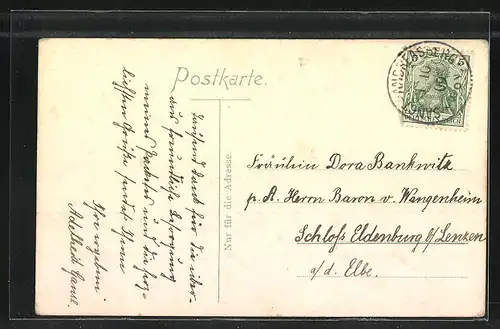 Postkarte.
Nur für die Adresse.
Tausend Dank für die über-
aus freundliche Besorgung
meines Packetes und die herz-
lichsten Grüße sendet Ihnen
Ihre ergebene
Adelheid
Fräulein Dora Bankwitz
p. A. Herrn Baron v. Wangenheim
Schloß Eldenburg b/Lenzen
a/d. Elbe.